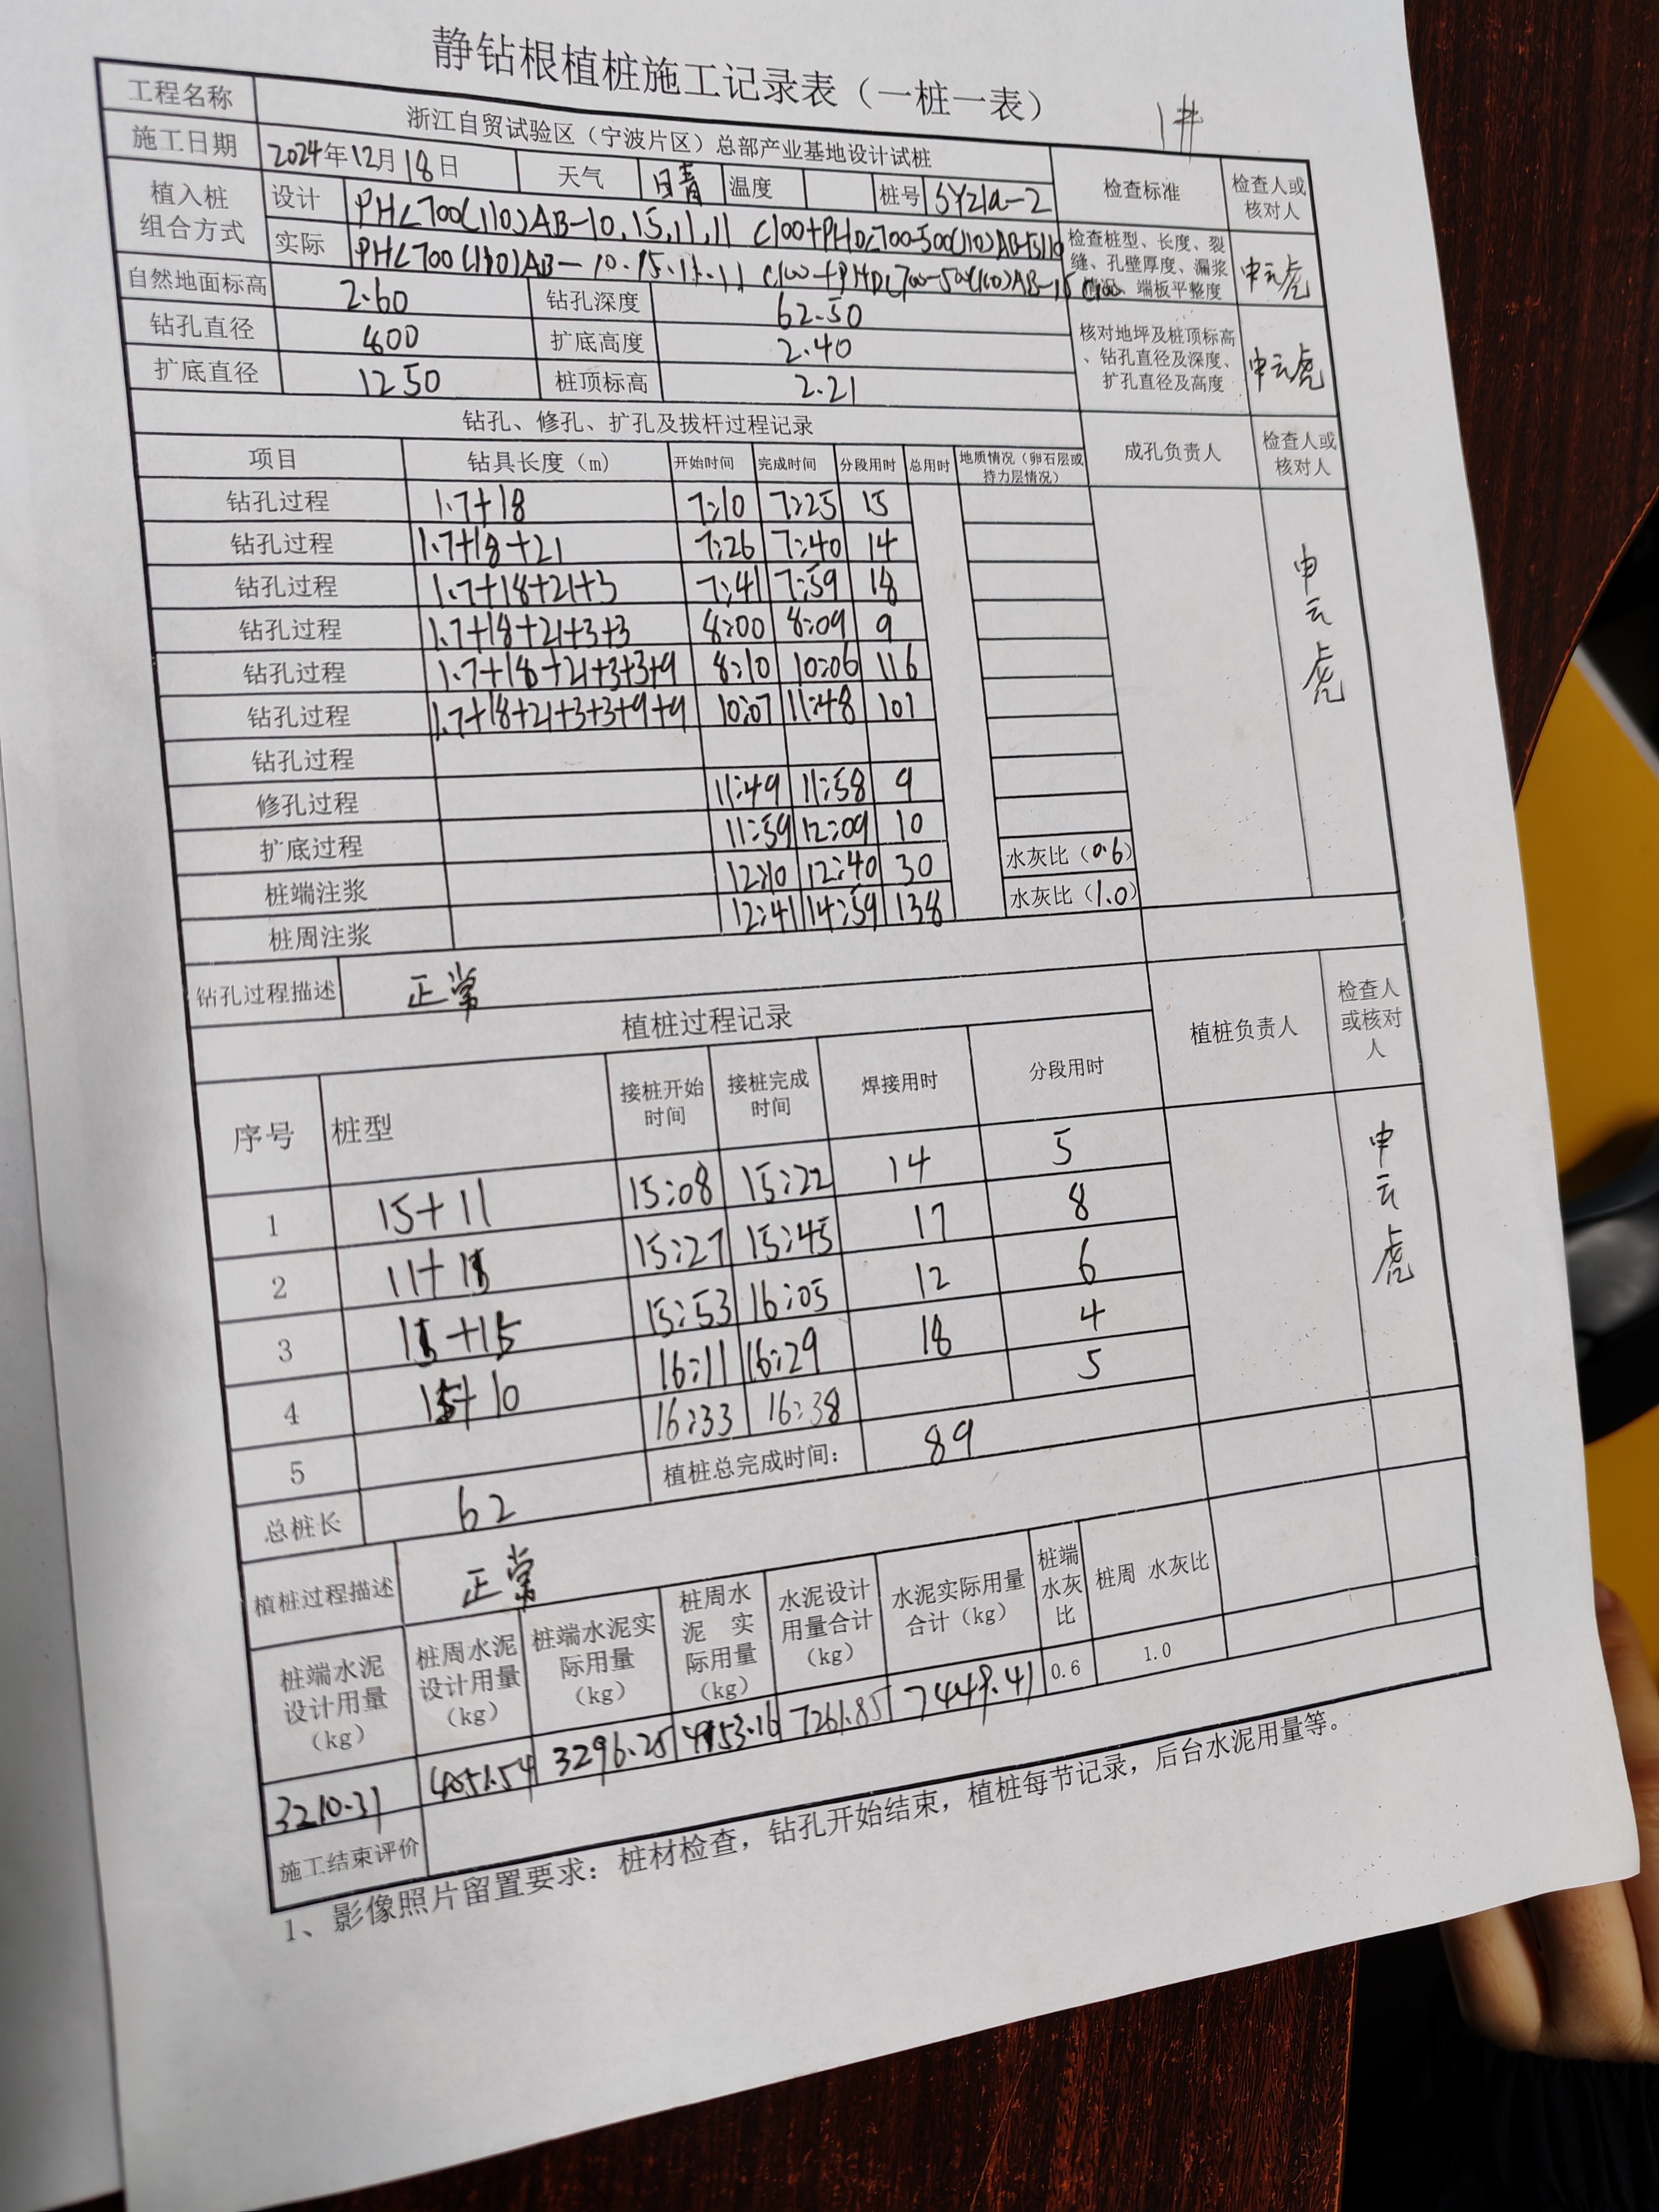 静钻根植桩施工记录表（一桩一表）
1#
工程名称 浙江自贸试验区（宁波片区）总部产业基地设计试桩 检查标准 检查人或核对人
施工日期 2024年12月18日 天气 晴 温度 桩号 SYZ1a-2
植入桩组合方式 设计 PHC700(110)AB-10,15,11,11 C100+PHDC700-500(110)AB-15 检查桩型、长度、裂缝、孔壁厚度、漏浆 端板平整度 申云虎
实际 PHC700(110)AB-10.15.11.11 C100+PHDC700-500(100)AB-15
自然地面标高 2.60 钻孔深度 62.50 核对地坪及桩顶标高、钻孔直径及深度、扩孔直径及高度 申云虎
钻孔直径 800 扩底高度 2.40
扩底直径 1250 桩顶标高 2.21
钻孔、修孔、扩孔及拔杆过程记录 成孔负责人 检查人或核对人
项目 钻具长度（m） 开始时间 完成时间 分段用时 总用时 地质情况（卵石层或持力层情况）
钻孔过程 1.7+18 7:10 7:25 15 申云虎
钻孔过程 1.7+18+21 7:26 7:40 14
钻孔过程 1.7+18+21+3 7:41 7:59 18
钻孔过程 1.7+18+21+3+3 8:00 8:09 9
钻孔过程 1.7+18+21+3+3+9 8:10 10:06 116
钻孔过程 1.7+18+21+3+3+9+9 10:07 11:48 101
钻孔过程
修孔过程 11:49 11:58 9
扩底过程 11:59 12:09 10
桩端注浆 12:10 12:40 30 水灰比（0.6）
桩周注浆 12:41 14:59 138 水灰比（1.0）
钻孔过程描述 正常
植桩过程记录 植桩负责人 检查人或核对人
序号 桩型 接桩开始时间 接桩完成时间 焊接用时 分段用时
1 15+11 15:08 15:22 14 5 申云虎
2 11+11 15:27 15:45 17 8
3 11+15 15:53 16:05 12 6
4 15+10 16:11 16:29 18 4
5 16:33 16:38 5
总桩长 62 植桩总完成时间： 89
植桩过程描述 正常
桩端水泥设计用量（kg） 桩周水泥设计用量（kg） 桩端水泥实际用量（kg） 桩周水泥 实际用量（kg） 水泥设计用量合计（kg） 水泥实际用量合计（kg） 桩端水灰比 桩周 水灰比
3210.31 4051.54 3296.25 4153.16 7261.85 7449.41 0.6 1.0
施工结束评价
1、影像照片留置要求：桩材检查，钻孔开始结束，植桩每节记录，后台水泥用量等。